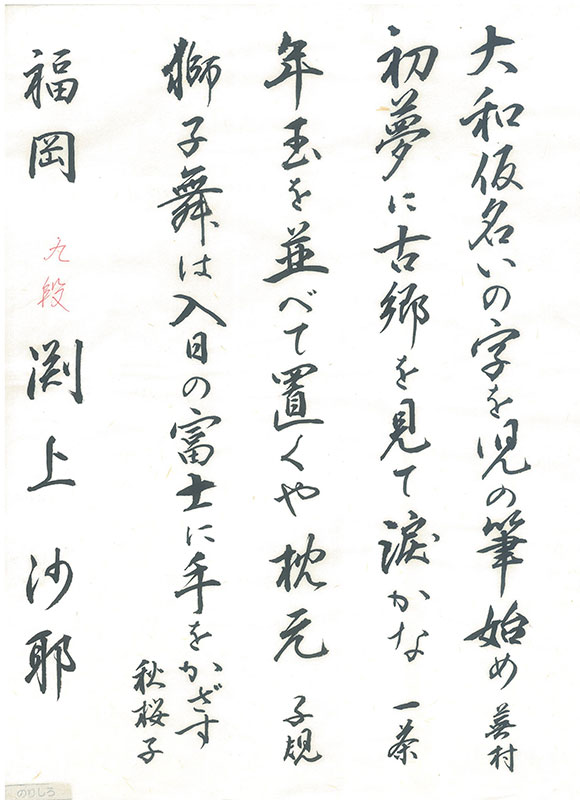 大和仮名いの字を児の筆始め 蕪村
初夢に古郷を見て涙かな 一茶
年玉を並べて置くや枕元 子規
獅子舞は入日の富士に手をかざす
秋桜子
福岡 九段 渕上 沙耶
のりしろ